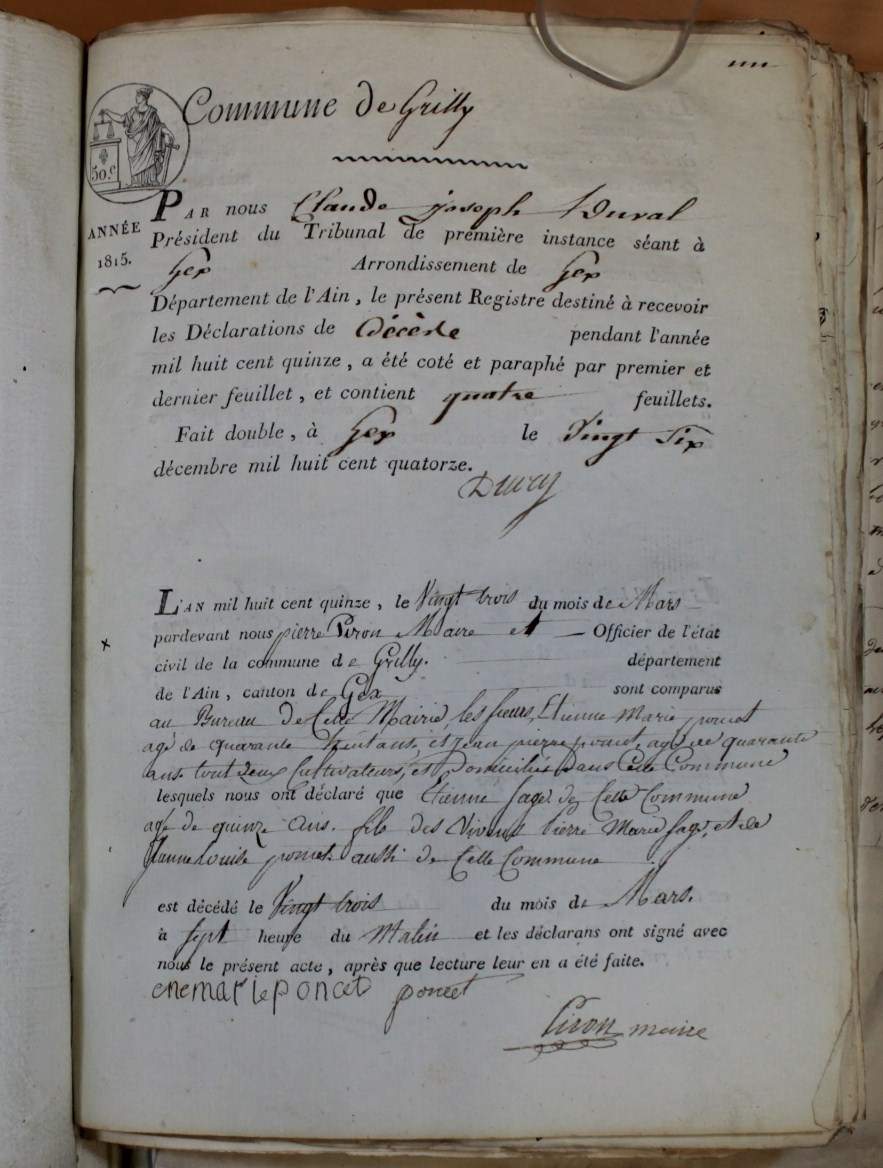 Commune de Grilly
50.c
ANNÉE
1815.
PAR nous Claude joseph Duval
Président du Tribunal de première instance séant à
Gex Arrondissement de Gex
Département de l'Ain, le présent Registre destiné à recevoir
les Déclarations de décède pendant l'année
mil huit cent quinze, a été coté et paraphé par premier et
dernier feuillet, et contient quatre feuillets.
Fait double, à Gex le Vingt Six
décembre mil huit cent quatorze.
L'AN mil huit cent quinze, le Vingt trois du mois de Mars
pardevant nous pierre Piron Maire et Officier de l'état
civil de la commune de Grilly. département
de l'Ain, canton de Gex sont comparus
au Bureau de Cette Mairie, les sieurs, Etienne Marie poncet
agé de quarante huit ans, et jean pierre poncet, agé de quarante
ans tout deux Cultivateurs, et Domiciliés dans Cette Commune
lesquels nous ont déclaré que Etienne sage de Cette Commune
agé de quinze ans. fils des Vivents pierre Marie sage, et de
Jeanne Louise poncet aussi de Cette Commune
est décédé le Vingt trois du mois de Mars.
à sept heure du Matin et les déclarans ont signé avec
nous le présent acte, après que lecture leur en a été faite.
enemarieponcet poncet
Piron maire